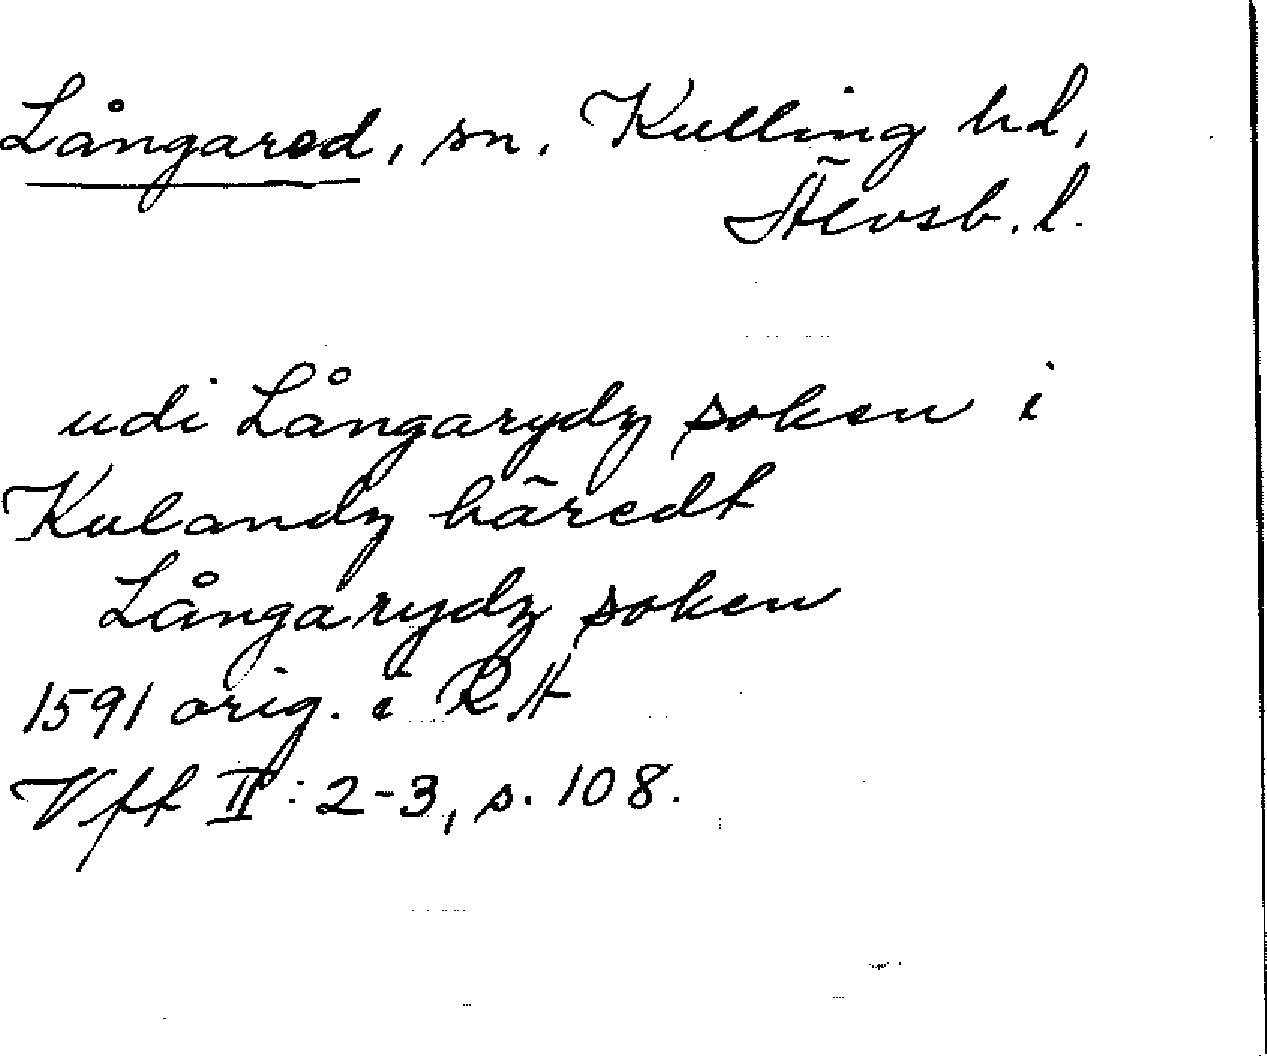 Långared, sn. Kulling hd,
Älvsb. l.
udi Långarydz soken i
Kulandz häredt
Långarydz soken
1591 orig. i RA
Vff II: 2-3, s. 108.